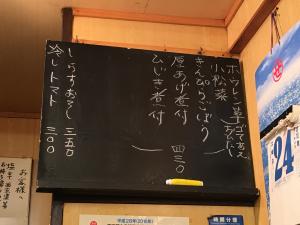 ホウレン草 ごまあえ
おひたし
小松菜
きんぴらごぼう
厚あげ煮付 四三〇
ひじき煮付
しらすおろし 三五〇
冷しトマト 三〇〇
お客様へ
24
平成28年(2016年)